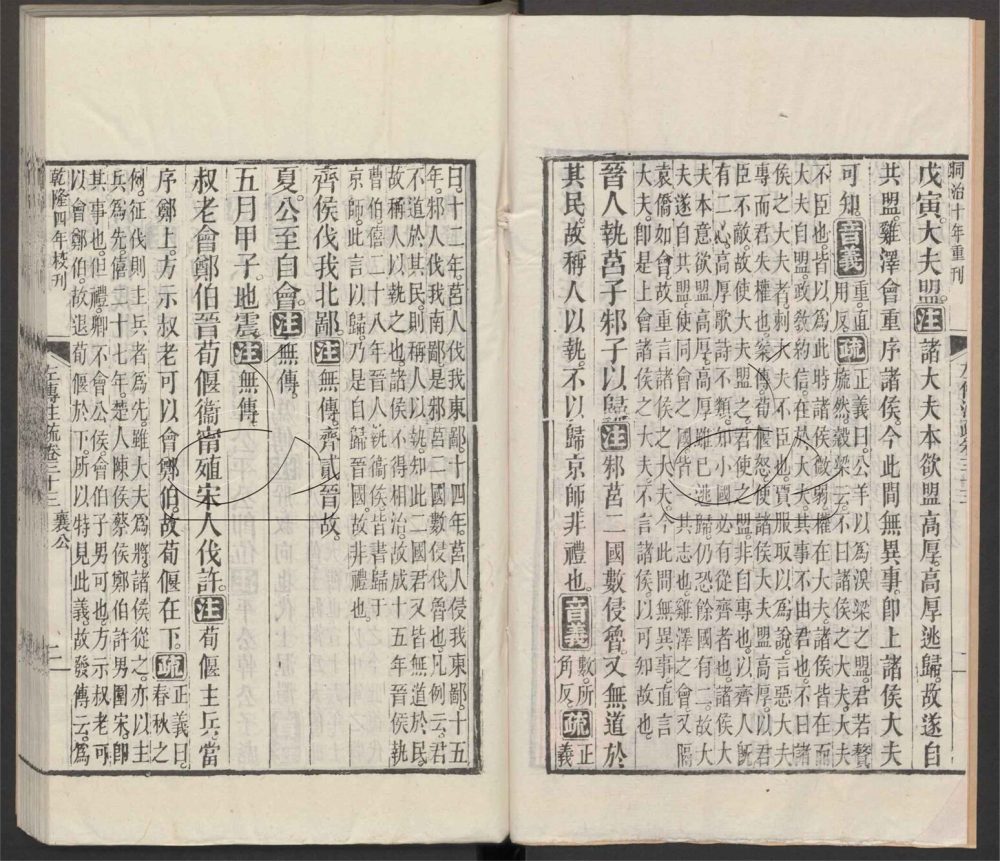 同治十年重刊
戊寅。大夫盟。注諸大夫本欲盟高厚。高厚逃歸。故遂自
共盟。雞澤會重序諸侯。今此間無異事。卽上諸侯大夫
可知。音義重。直用反。疏正義曰。公羊以爲溴梁之盟。君若贅
旒然。穀梁云。不曰諸侯之大夫。大夫
不臣也。皆以爲此時諸侯微弱。權在大夫。諸侯皆在而
大夫自盟。政敎約信。在於大夫。其事不由君也。不曰諸
侯之大夫者。刺大夫不臣也。賈服取以爲說。言惡大夫
專而君失權也。案傳。荀偃怒。使諸侯大夫盟高厚。以君
臣不敵。故使大夫盟之。君使之盟。非自專也。以齊人旣
有二心。高厚歌詩不類。知小國必有從齊者也。諸侯大
夫本意欲盟高厚。高厚雖已逃歸。仍恐餘國有二。故大
夫遂自共盟。使同會之國。皆一其志也。雞澤之會。又隔
袁僑如會。故重言諸侯之大夫。今此間無異事。直言
大夫。卽是上會諸侯大夫。不言諸侯。以可知故也。
晉人執莒子邾子以歸。注邾莒二國數侵魯。又無道於
其民。故稱人以執。不以歸京師。非禮也。音義數。所角反。疏正義
曰。十二年。莒人伐我東鄙。十四年。莒人侵我東鄙。十五
年。邾人伐我南鄙。是邾莒二國數侵伐魯也。凡例云。君
不道於其民。則稱人以執。知此二國君又皆無道於民。
故稱人以執之也。諸侯不得相治。故成十五年。晉侯執
曹伯。僖二十八年。晉人執衞侯。皆書歸于
京師。此言以歸。乃是自歸晉國。故非禮也。
齊侯伐我北鄙。注無傳。齊貳晉故。
夏。公至自會。注無傳。
五月甲子。地震。注無傳。
叔老會鄭伯晉荀偃衞甯殖宋人伐許。注荀偃主兵。當
序鄭上。方示叔老可以會鄭伯。故荀偃在下。疏正義曰。春秋之
例。征伐則主兵者爲先。雖大夫爲將。諸侯從之。亦以主
兵爲先。僖二十七年。楚人陳侯蔡侯鄭伯許男圍宋。卽
其事也。但禮。卿不會公侯。會伯子男可也。方示叔老可
以會鄭伯。故退荀偃於下。所以特見此義。故發傳云。爲
乾隆四年校刊
左傳注疏卷三十三 襄公
二